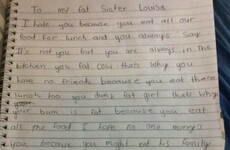 To my fat Sister Louise
I hate you because you eat all our
food for lunch and you always say
It's not you but you are always in the
kitchen you fat cow thats why you
have no friends because you eat there
lunch too you dum fat girl thats why
your bum is fat because you eat
all the food I hope no one marrys
you becaus you might eat his family